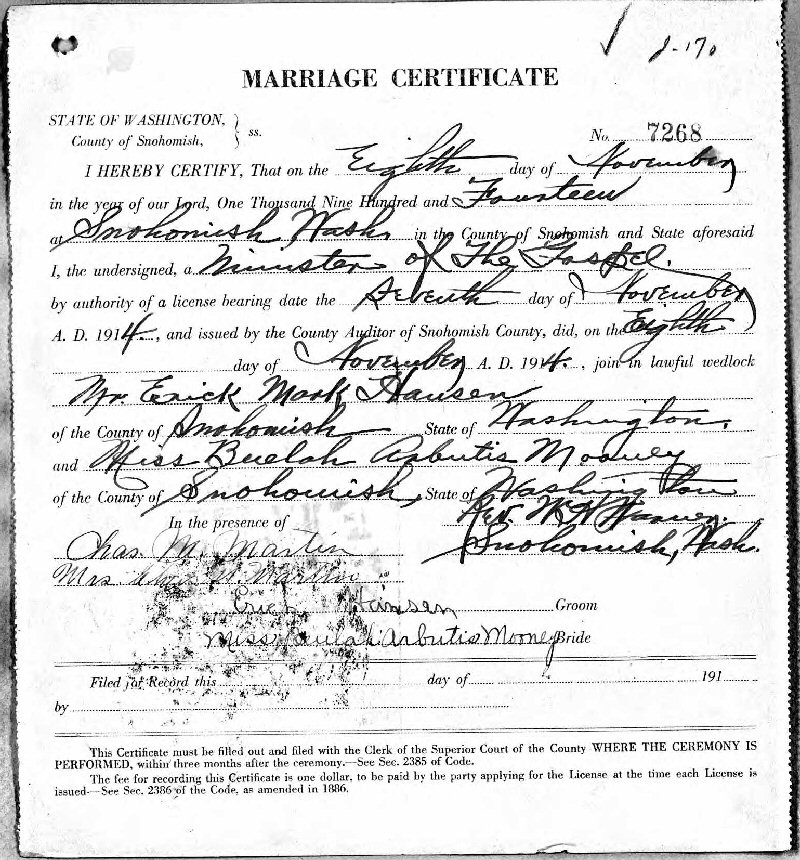 2-170
MARRIAGE CERTIFICATE
STATE OF WASHINGTON,
County of Snohomish, } ss.
No. 7268
I HEREBY CERTIFY, That on the Eighth day of November
in the year of our Lord, One Thousand Nine Hundred and Fourteen
at Snohomish, Wash. in the County of Snohomish and State aforesaid
I, the undersigned, a Minister of The Gospel.
by authority of a license bearing date the Seventh day of November
A. D. 1914, and issued by the County Auditor of Snohomish County, did, on the Eighth
day of November A. D. 1914, join in lawful wedlock
Mr. Erick Mark Hansen
of the County of Snohomish State of Washington.
and Miss Buelah Arbutis Mooney
of the County of Snohomish, State of Washington
In the presence of Rev. W. H.
Chas. M. Martin Snohomish, Wash.
Mrs. Martin
Erick Hansen Groom
Miss Beulah Arbutis Mooney Bride
Filed for Record this day of 191
by
This Certificate must be filled out and filed with the Clerk of the Superior Court of the County WHERE THE CEREMONY IS
PERFORMED, within three months after the ceremony.—See Sec. 2385 of Code.
The fee for recording this Certificate is one dollar, to be paid by the party applying for the License at the time each License is
issued—See Sec. 2386 of the Code, as amended in 1886.